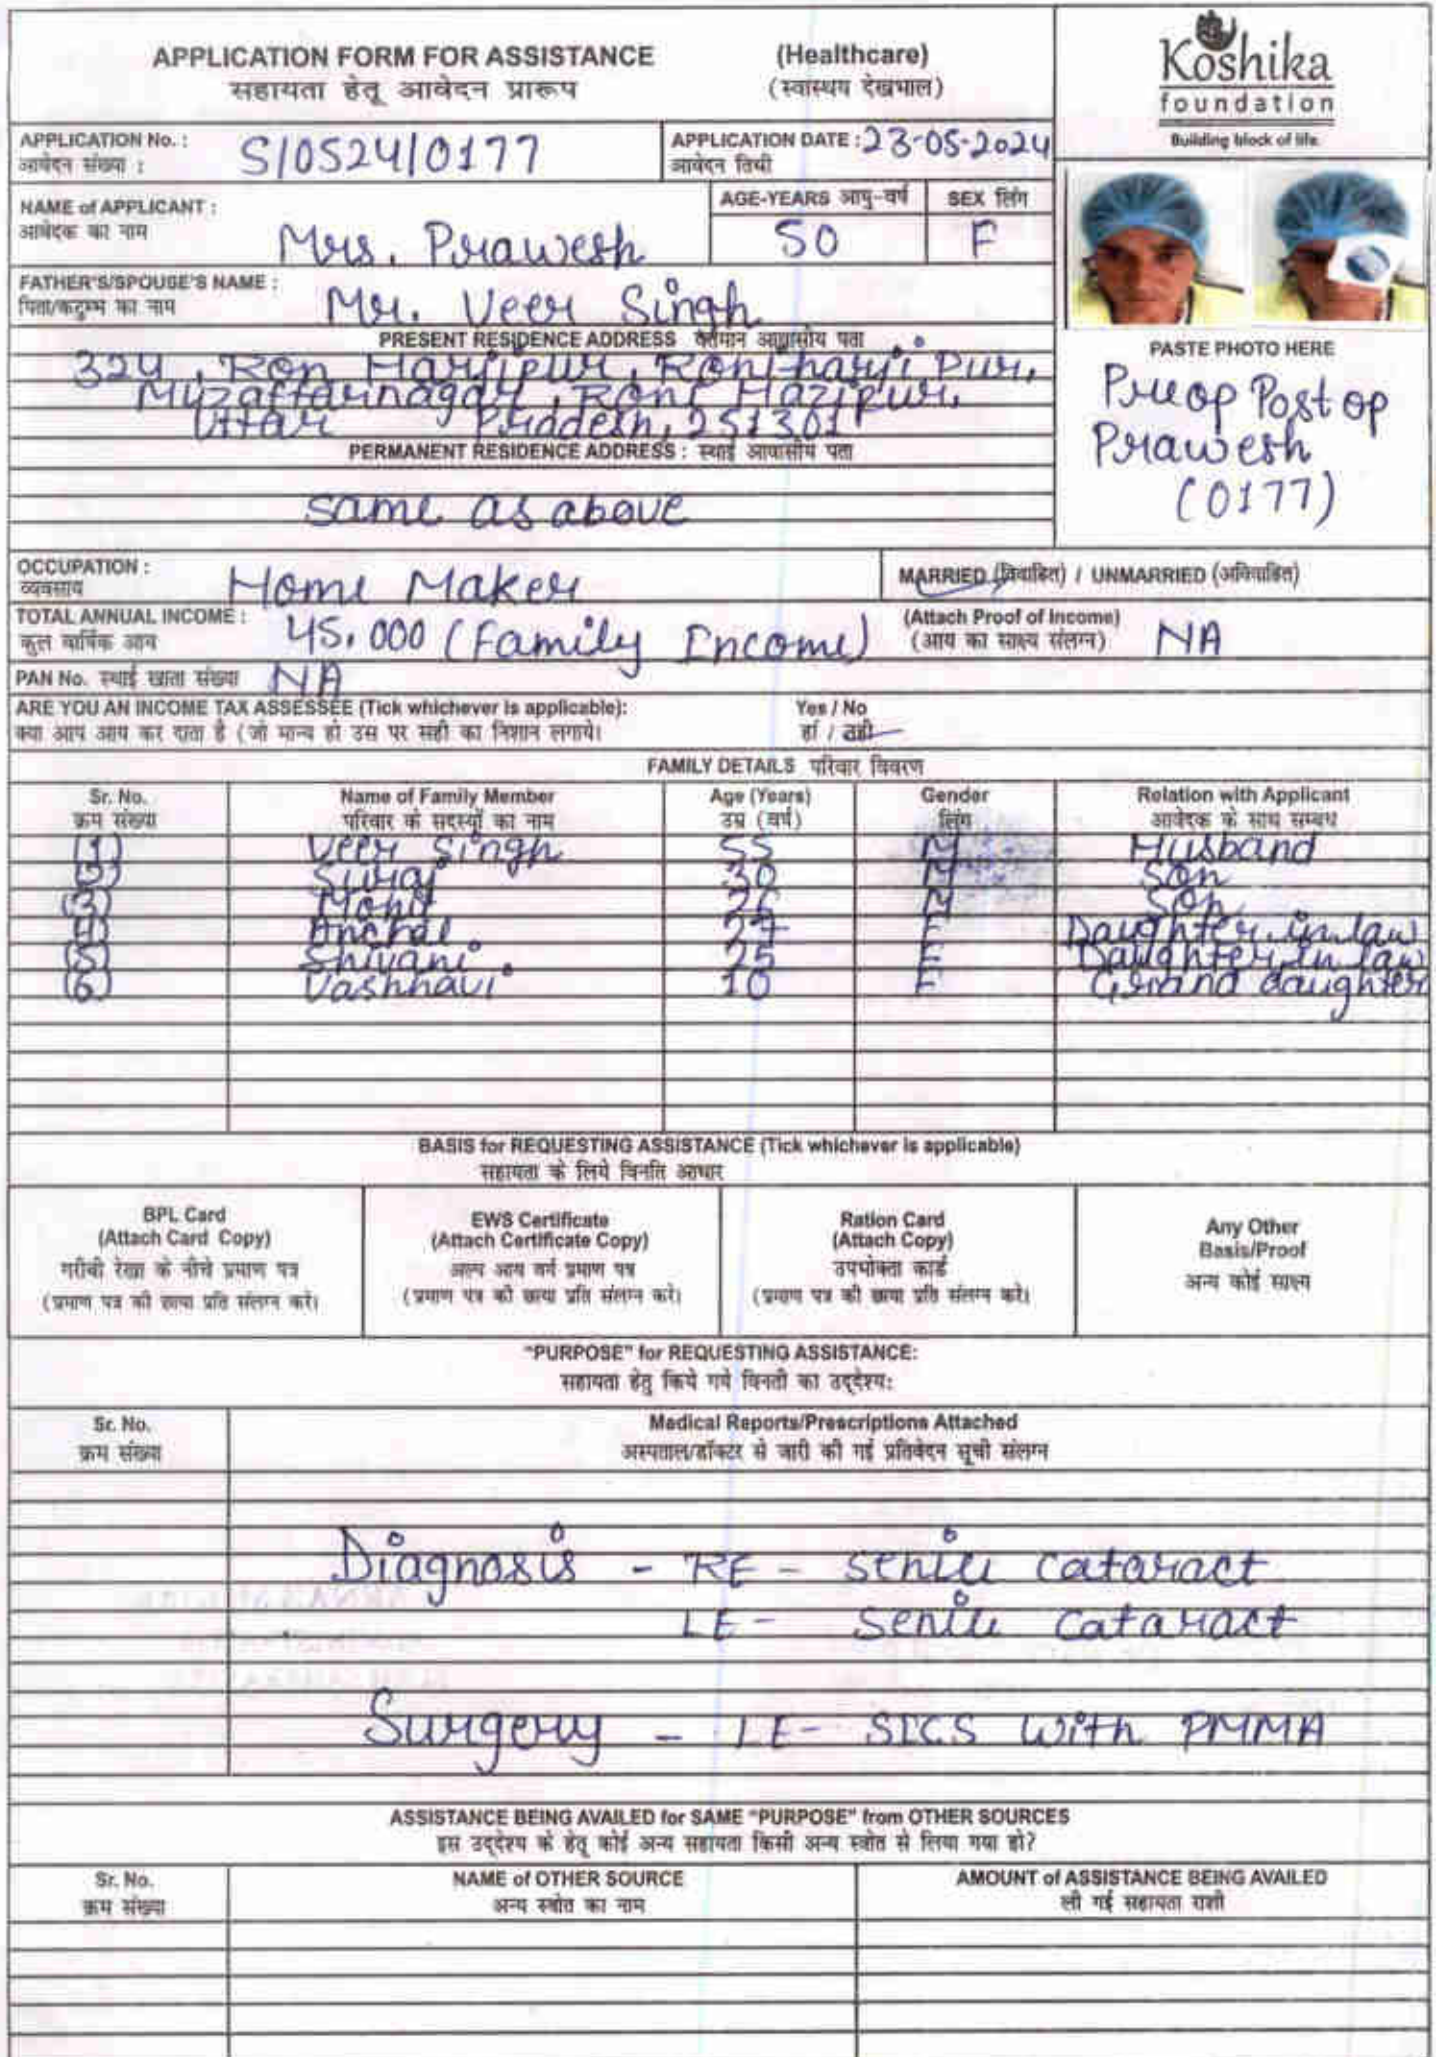 APPLICATION FORM FOR ASSISTANCE (Healthcare)
सहायता हेतू आवेदन प्रारूप (स्वास्थय देखभाल)
Koshika
foundation
Building block of life.
APPLICATION No. : S/0524/0177 APPLICATION DATE : 23-05-2024
आवेदन संख्या : आवेदन तिथी
NAME of APPLICANT : Mrs. Prawesh AGE-YEARS आयु-वर्ष 50 SEX लिंग F
आवेदक का नाम
FATHER'S/SPOUSE'S NAME : Mr. Veer Singh
पिता/कटुम्भ का नाम
PRESENT RESIDENCE ADDRESS वर्तमान आवासीय पता
324, Ron Harjipur, Roni harji Pur,
Muzaffarnagar, Roni Hazipur,
Uttar Pradesh, 251301
PERMANENT RESIDENCE ADDRESS : स्थाई आवासीय पता
same as above
PASTE PHOTO HERE
Preop Post op
Prawesh
(0177)
OCCUPATION : Home Maker MARRIED (विवाहित) / UNMARRIED (अविवाहित)
व्यवसाय
TOTAL ANNUAL INCOME : 45,000 (Family Income) (Attach Proof of Income) NA
कुल वार्षिक आय (आय का साक्ष्य संलग्न)
PAN No. स्थाई खाता संख्या NA
ARE YOU AN INCOME TAX ASSESSEE (Tick whichever is applicable): Yes / No
क्या आप आय कर दाता है (जो मान्य हो उस पर सही का निशान लगाये। हां / नही
FAMILY DETAILS परिवार विवरण
Sr. No. Name of Family Member Age (Years) Gender Relation with Applicant
क्रम संख्या परिवार के सदस्यों का नाम उम्र (वर्ष) लिंग आवेदक के साथ सम्बध
(1) Veer Singh 55 M Husband
(2) Suraj 30 M Son
(3) Mohit 26 M Son
(4) Anchal 27 F Daughter in law
(5) Shivani 25 F Daughter in law
(6) Vashnavi 10 F Grand daughter
BASIS for REQUESTING ASSISTANCE (Tick whichever is applicable)
सहायता के लिये विनति आधार
BPL Card
(Attach Card Copy)
गरीबी रेखा के नीचे प्रमाण पत्र
(प्रमाण पत्र की छाया प्रति संलग्न करे।
EWS Certificate
(Attach Certificate Copy)
अल्प आय वर्ग प्रमाण पत्र
(प्रमाण पत्र की छाया प्रति संलग्न करे।
Ration Card
(Attach Copy)
उपभोक्ता कार्ड
(प्रमाण पत्र की छाया प्रति संलग्न करे।
Any Other
Basis/Proof
अन्य कोई साक्ष्य
"PURPOSE" for REQUESTING ASSISTANCE:
सहायता हेतु किये गये विनती का उद्देश्य:
Sr. No. Medical Reports/Prescriptions Attached
क्रम संख्या अस्पताल/डॉक्टर से जारी की गई प्रतिवेदन सूची संलग्न
Diagnosis - RE - Senile cataract
LE - Senile cataract
Surgery - LE - SICS with PMMA
ASSISTANCE BEING AVAILED for SAME "PURPOSE" from OTHER SOURCES
इस उद्देश्य के हेतू कोई अन्य सहायता किसी अन्य स्त्रोत से लिया गया हो?
Sr. No. NAME of OTHER SOURCE AMOUNT of ASSISTANCE BEING AVAILED
क्रम संख्या अन्य स्त्रोत का नाम ली गई सहायता राशी